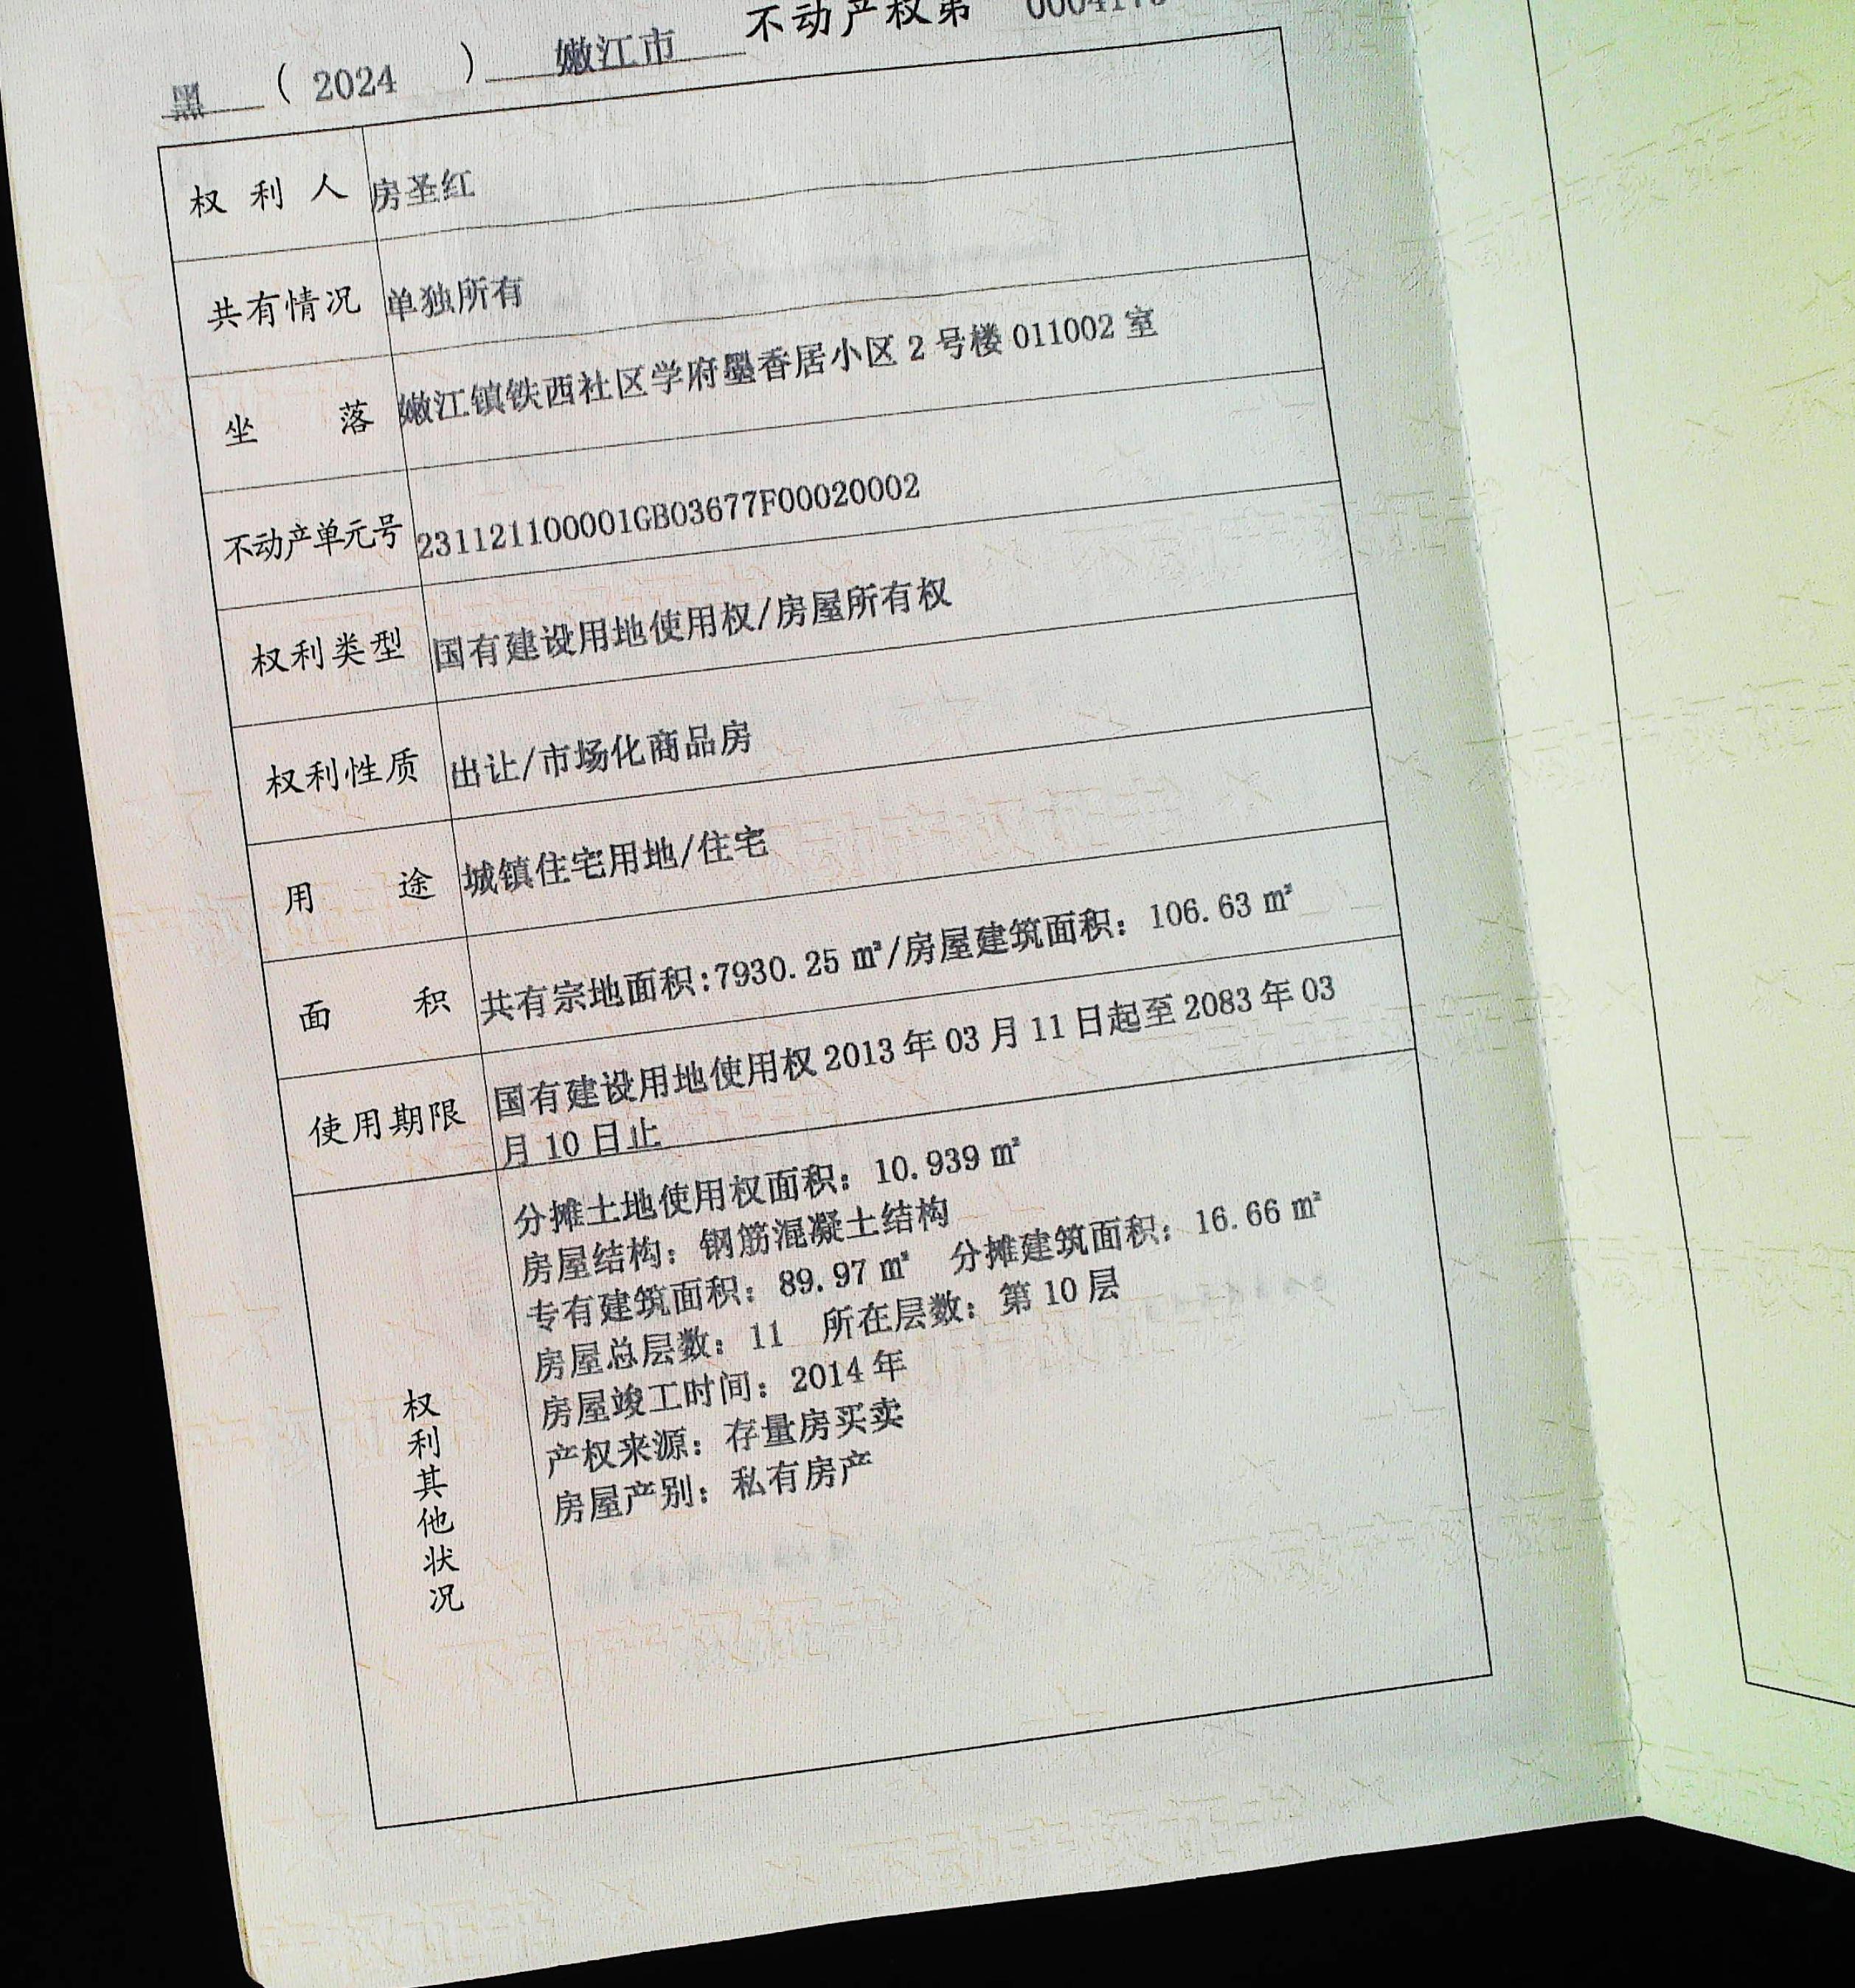 黑 ( 2024 ) 嫩江市 不动产权第
权利人 房圣红
共有情况 单独所有
坐落 嫩江镇铁西社区学府墨香居小区 2 号楼 011002 室
不动产单元号 231121100001GB03677F00020002
权利类型 国有建设用地使用权/房屋所有权
权利性质 出让/市场化商品房
用途 城镇住宅用地/住宅
面积 共有宗地面积:7930.25 ㎡/房屋建筑面积: 106.63 ㎡
使用期限 国有建设用地使用权 2013 年 03 月 11 日起至 2083 年 03
月 10 日止
权利其他状况
分摊土地使用权面积: 10.939 ㎡
房屋结构: 钢筋混凝土结构
专有建筑面积: 89.97 ㎡ 分摊建筑面积: 16.66 ㎡
房屋总层数: 11 所在层数: 第 10 层
房屋竣工时间: 2014 年
产权来源: 存量房买卖
房屋产别: 私有房产